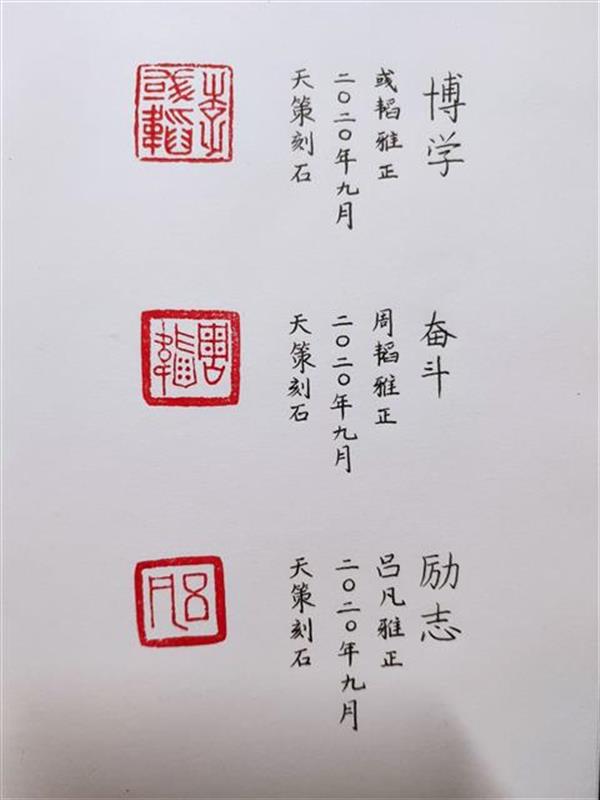 博学
或韬雅正
二〇二〇年九月
天策刻石
奋斗
周韬雅正
二〇二〇年九月
天策刻石
周韬
励志
吕凡雅正
二〇二〇年九月
天策刻石
吕凡